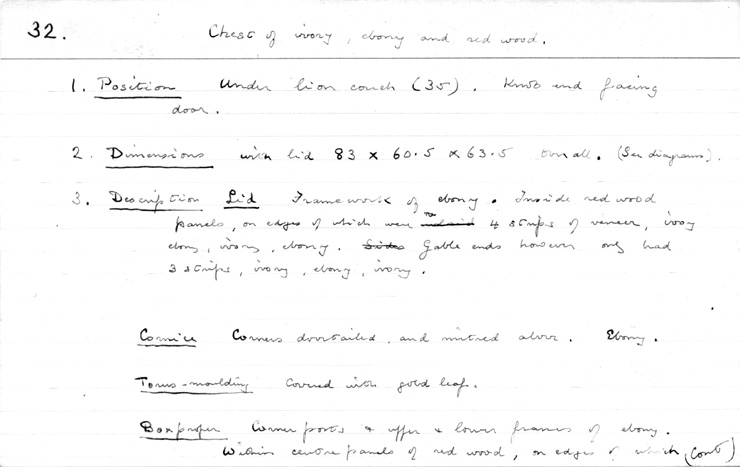 32.
Chest of ivory, ebony and red wood.
1. Position Under lion couch (35). Knob end facing
door.
2. Dimensions with lid 83 x 60.5 x 63.5 overall. (See diagrams).
3. Description Lid Framework of ebony. Inside red wood
panels, on edges of which were 4 strips of veneer, ivory
ebony, ivory, ebony. Sides Gable ends however only had
3 strips, ivory, ebony, ivory.
Cornice Corners dovetailed, and mitred above. Ebony.
Torus-moulding Covered with gold leaf.
Box proper Corner posts & upper & lower frames of ebony.
Within centre panels of red wood, on edges of which, (cont)